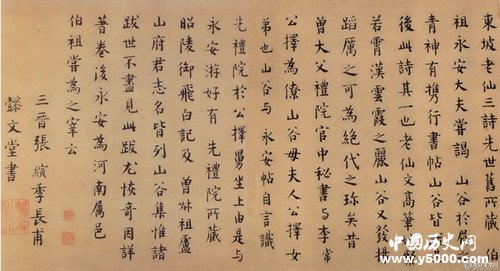 東坡老仙三詩先世舊所藏伯
祖永安大夫嘗謁山谷於眉之
青神有携行書帖山谷皆跋其
後此詩其一也老仙文高筆妙粲
若霄漢雲霞之麗山谷又發揚
蹈厲之可為絶代之珍矣昔
曾大父禮院官中秘書與李常
公擇為僚山谷母夫人公擇女
弟也山谷與永安帖自言識
先禮院於公擇舅坐上由是與
永安游好有先禮院所藏
昭陵御飛白記及曾叔祖盧
山府君志名皆列山谷集惟諸
跋世不盡見此跋尤恢奇因詳
著卷後永安為河南属邑
伯祖嘗為之宰云
三晉張縯季長甫
懿文堂書
中国历史网
www.y5000.com